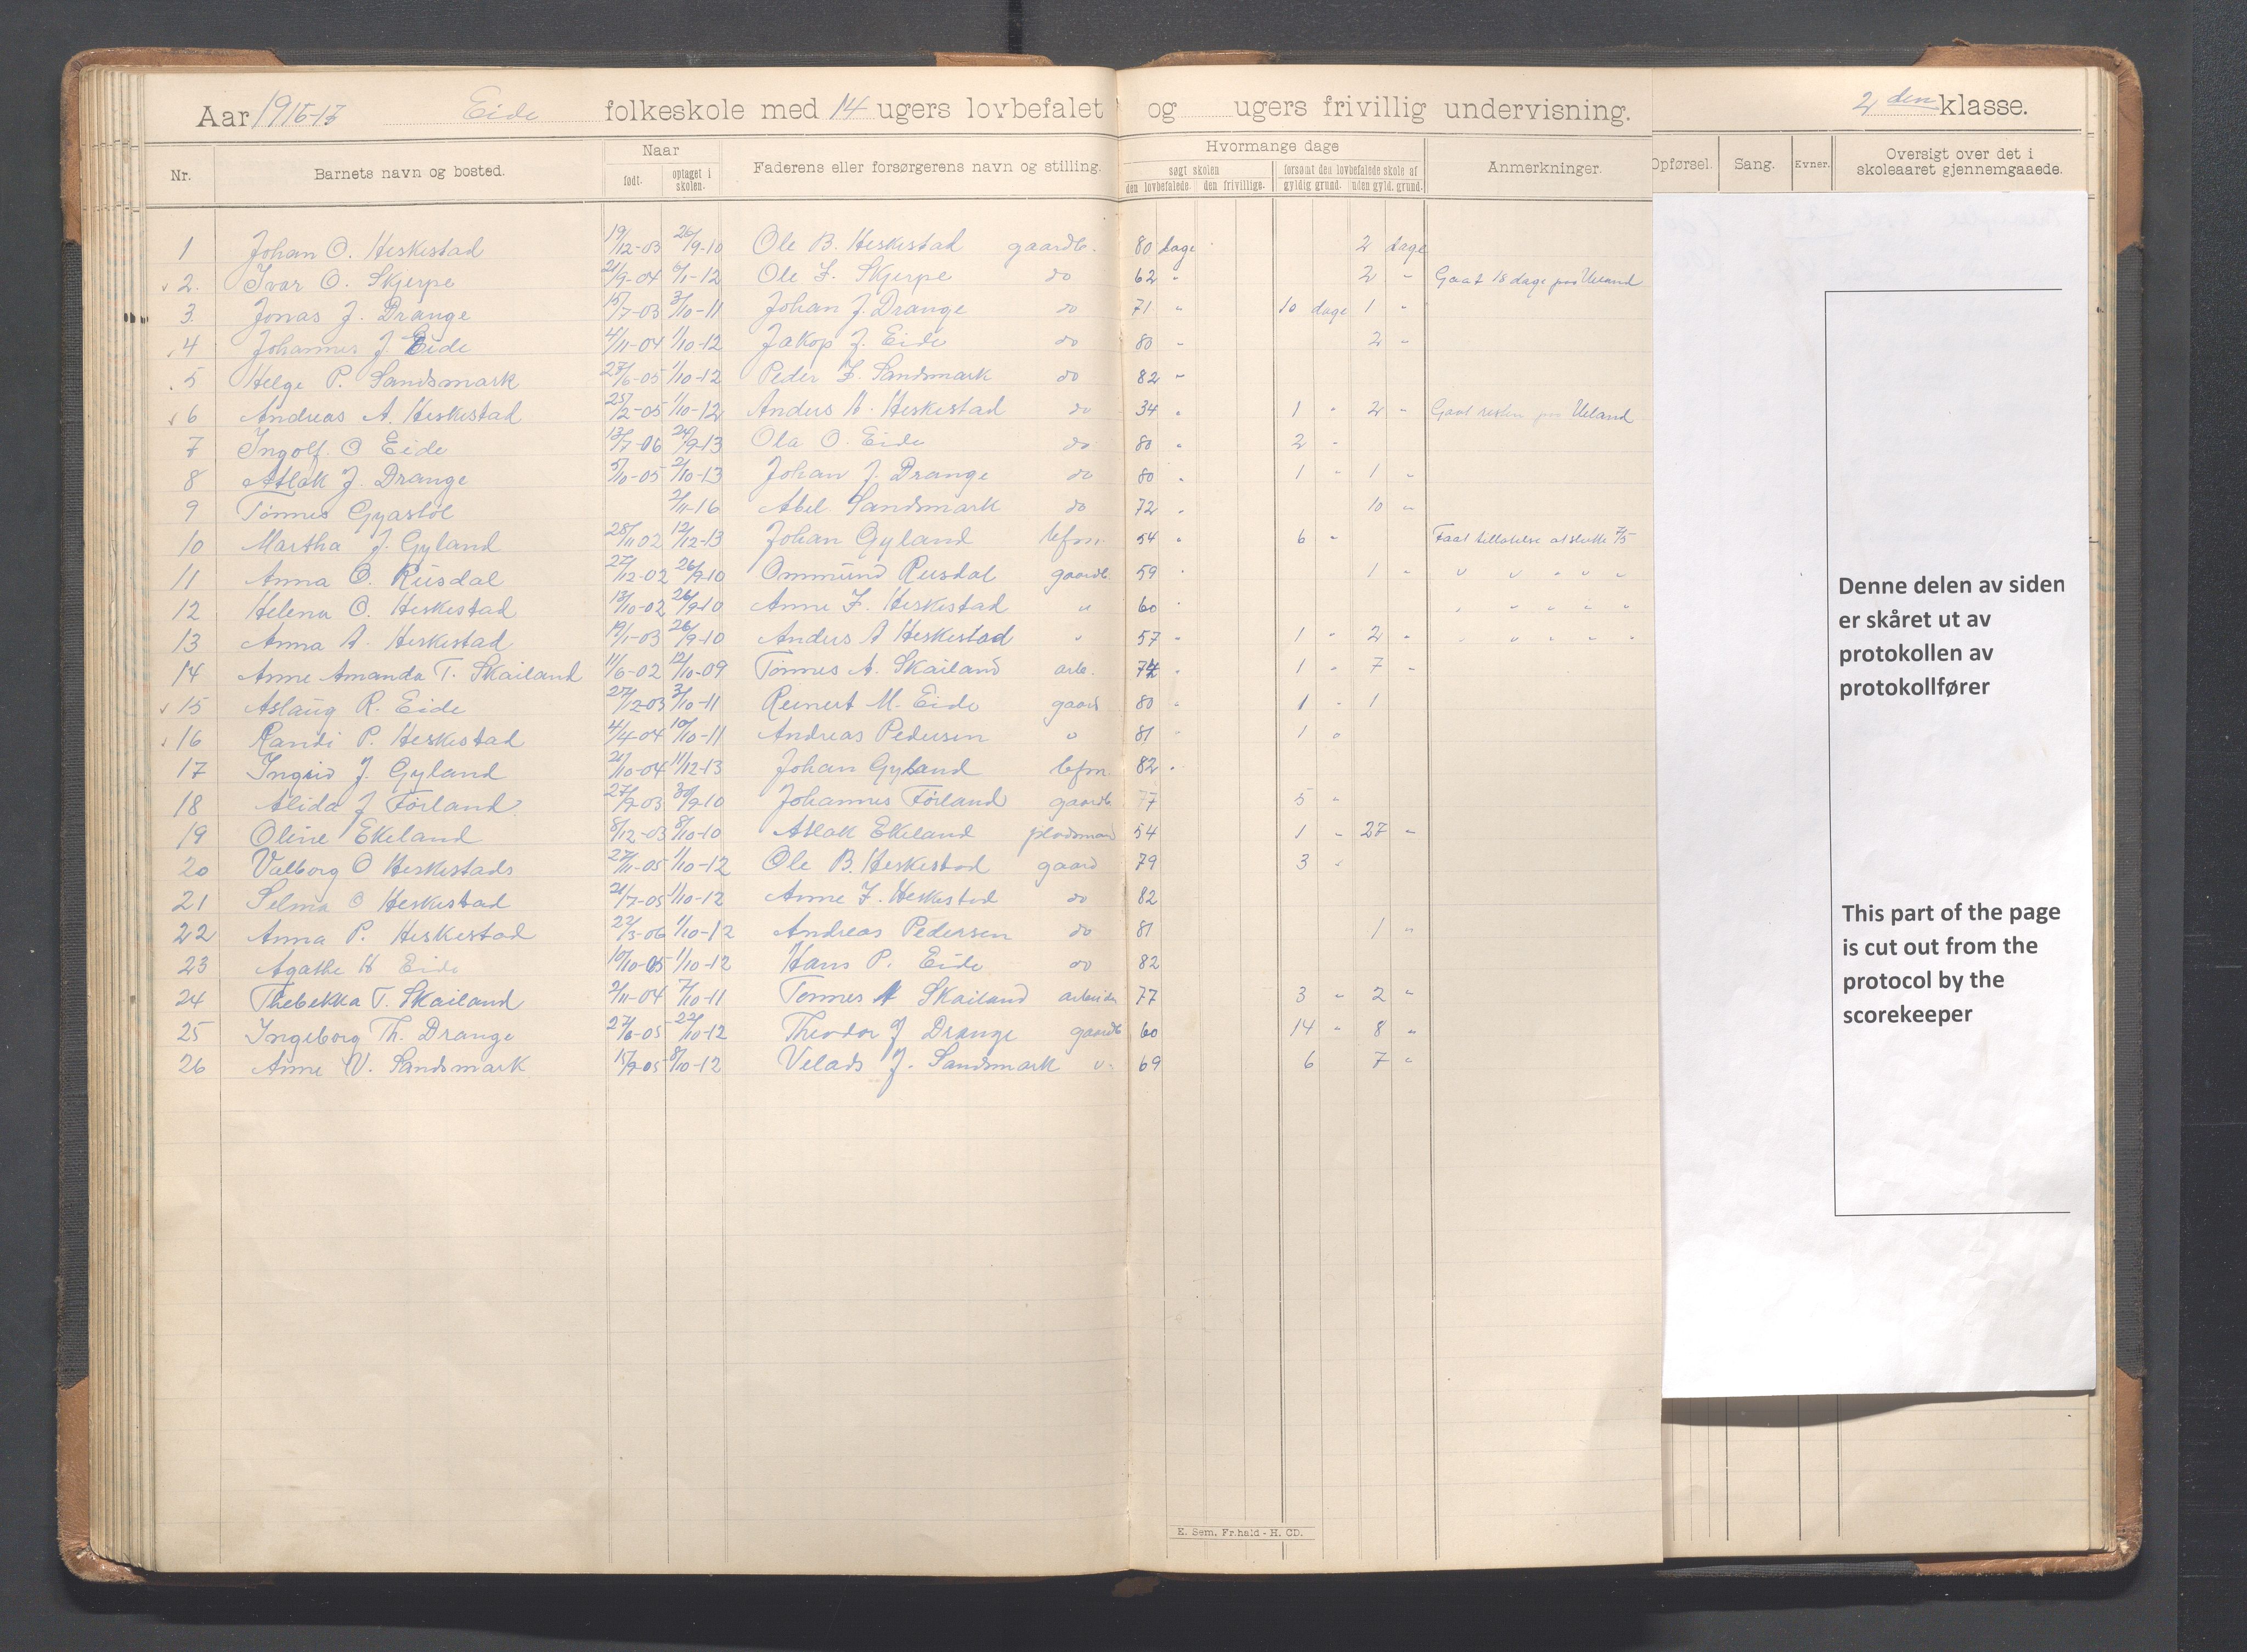 Aar 1915-16 Eide folkeskole med 14 ugers lovbefalet og ugers frivillig undervisning. 2den klasse.
Nr. Barnets navn og bosted. Naar født. optaget i skolen. Faderens eller forsørgerens navn og stilling. Hvormange dage søgt skolen den lovbefalede. den frivillige. forsømt den lovbefalede skole af gyldig grund. uden gyld. grund. Anmerkninger. Opførsel. Sang. Evner. Oversigt over det i skoleaaret gjennemgaaede.
1 Johan O. Heskestad 19/12-03 26/9-10 Ole B. Heskestad gaardb. 80 dage 2 dage
2. Ivar O. Skjerpe 21/9-04 6/1-12 Ole F. Skjerpe do 62 " 2 " Gaat 18 dage paa Ueland
3. Jonas J. Drange 15/7-03 3/10-11 Johan J. Drange do 71 " 10 dage 1 "
4 Johannes J. Eide 4/11-04 1/10-12 Jakop J. Eide do 80 " 2 "
5 Helge P. Sandsmark 23/6-05 1/10-12 Peder F. Sandsmark do 82 "
6 Andreas A. Heskestad 25/2-05 1/10-12 Anders A. Heskestad do 34 " 1 " 2 " Gaat resten paa Ueland
7 Ingolf O Eide 13/7-06 24/9-13 Ola O. Eide do 80 " 2 "
8 Atlak J. Drange 5/10-05 2/10-13 Johan J. Drange do 80 " 1 " 1 "
9 Tönnes Gyastöl 2/11-16 Abel Sandsmark do 72 " 10 "
10 Martha J. Gyland 28/11 02 12/12-13 Johan Gyland bfm. 54 " 6 " Faat tillatelse at slutte 7/5
11 Anna O. Rusdal 27/12-02 26/9-10 Ommund Rusdal gaardb. 59 " 1 " " " " " "
12 Helena O. Heskestad 13/10-02 26/9-10 Anne F. Heskestad " 60 " " " " " "
13 Anna A. Heskestad 19/1-03 26/9-10 Anders A Heskestad " 57 " 1 " 2 " " " " " "
14 Anne Amanda T. Skailand 11/6-02 12/10-09 Tönnes A. Skailand arb. 74 " 1 " 7 "
15 Aslaug R. Eide 27/12-03 3/10-11 Reinert M. Eide gaard 80 " 1 " 1
16 Randi P. Heskestad 4/4-04 10/10-11 Andreas Pedersen " 81 " 1 "
17 Ingrid J. Gyland 21/10-04 11/12-13 Johan Gyland bfm. 82 "
18 Alida J Förland 27/9-03 30/9-10 Johannes Förland gaardb 77 5 "
19 Oline Ekeland 8/12-03 8/10-10 Atlak Ekeland pladsmand 54 1 " 27 "
20 Valborg O Heskestads 27/11-05 1/10-12 Ole B. Heskestad gaard 79 3 "
21 Selma O Heskestad 21/7-05 1/10-12 Anne F. Heskestad do 82
22 Anna P. Heskestad 22/3-06 1/10-12 Andreas Pedersen do 81 1 "
23 Agathe H Eide 10/10-05 1/10-12 Hans P. Eide do 82
24 Thebekka T. Skailand 2/11-04 7/10-11 Tonnes A Skailand arbeider 77 3 " 2 "
25 Ingeborg Th. Drange 27/6-05 22/10-12 Theodor J Drange gaardb 60 14 " 8 "
26 Anne V. Sandsmark 15/9-05 8/10-12 Velads J. Sandsmark " 69 6 7 "
Denne delen av siden
er skåret ut av
protokollen av
protokollfører
This part of the page
is cut out from the
protocol by the
scorekeeper
E. Sem, Fr.hald - H. CD.